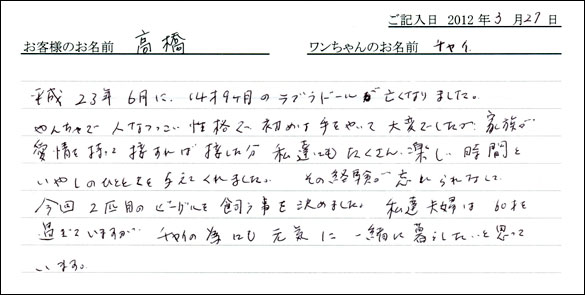 ご記入日 2012年3月27日
お客様のお名前 高橋 ワンちゃんのお名前 チャイ
平成 23年 6月に、14才9ヶ月のラブラドールが亡くなりました。
やんちゃで人なつっこい性格で初めは手をやいて大変でしたが、家族が
愛情を持って接すれば接した分 私達にもたくさん楽しい時間と
いやしのひとときを与えてくれました。 その経験が忘れられなくて
今回 2匹目のビーグルを飼う事を決めました。私達夫婦は60才を
過ぎていますが チャイの為にも 元気に 一緒に暮らしたいと思って
います。